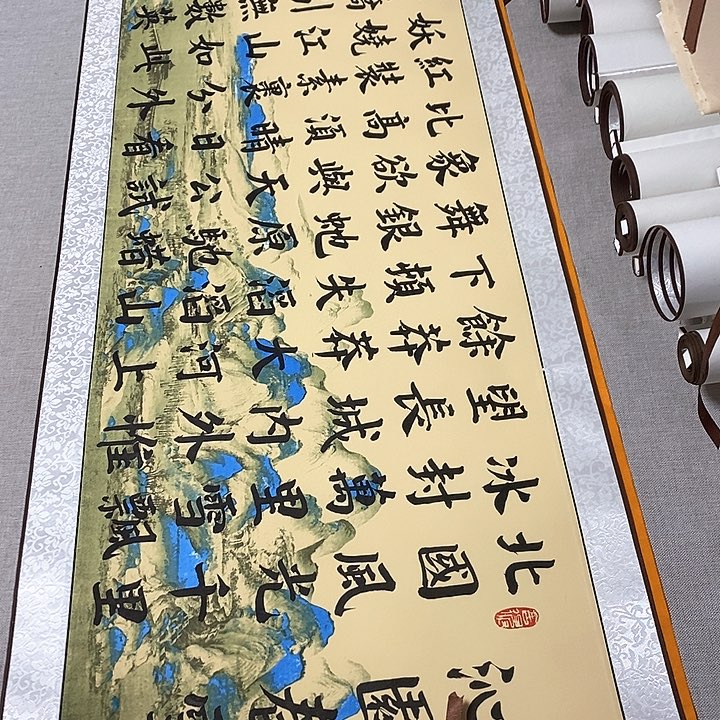 沁園春雪
北國風光千里
冰封萬里雪飄
望長城內外惟
餘莽莽大河上
下頓失滔滔山
舞銀蛇原馳蜡
象欲與天公試
比高須晴日看
紅裝素裹分外
妖嬈江山如此
引無數英